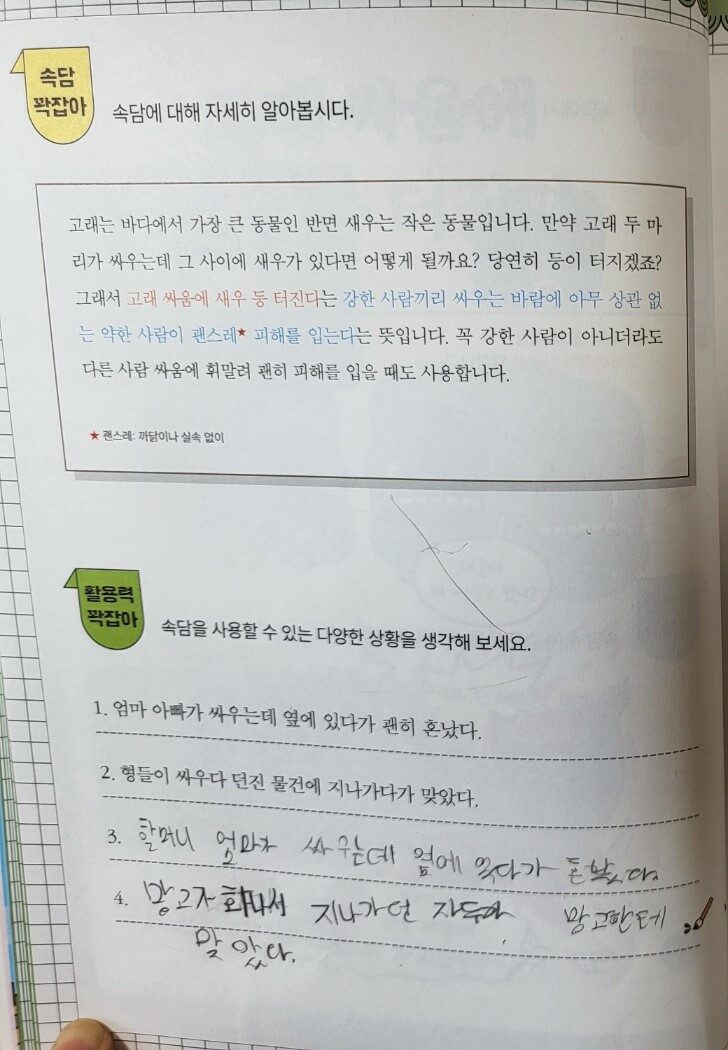 속담
꽉잡아
속담에 대해 자세히 알아봅시다.
고래는 바다에서 가장 큰 동물인 반면 새우는 작은 동물입니다. 만약 고래 두 마
리가 싸우는데 그 사이에 새우가 있다면 어떻게 될까요? 당연히 등이 터지겠죠?
그래서 고래 싸움에 새우 등 터진다는 강한 사람끼리 싸우는 바람에 아무 상관 없
는 약한 사람이 괜스레★ 피해를 입는다는 뜻입니다. 꼭 강한 사람이 아니더라도
다른 사람 싸움에 휘말려 괜히 피해를 입을 때도 사용합니다.
★ 괜스레: 까닭이나 실속 없이
활용력
꽉잡아
속담을 사용할 수 있는 다양한 상황을 생각해 보세요.
1. 엄마 아빠가 싸우는데 옆에 있다가 괜히 혼났다.
2. 형들이 싸우다 던진 물건에 지나가다가 맞았다.
3. 할머니 엄마가 싸우는데 옆에 있다가
4. 망고가 화나서 지나가던 자두가 망고한테
맞았다.